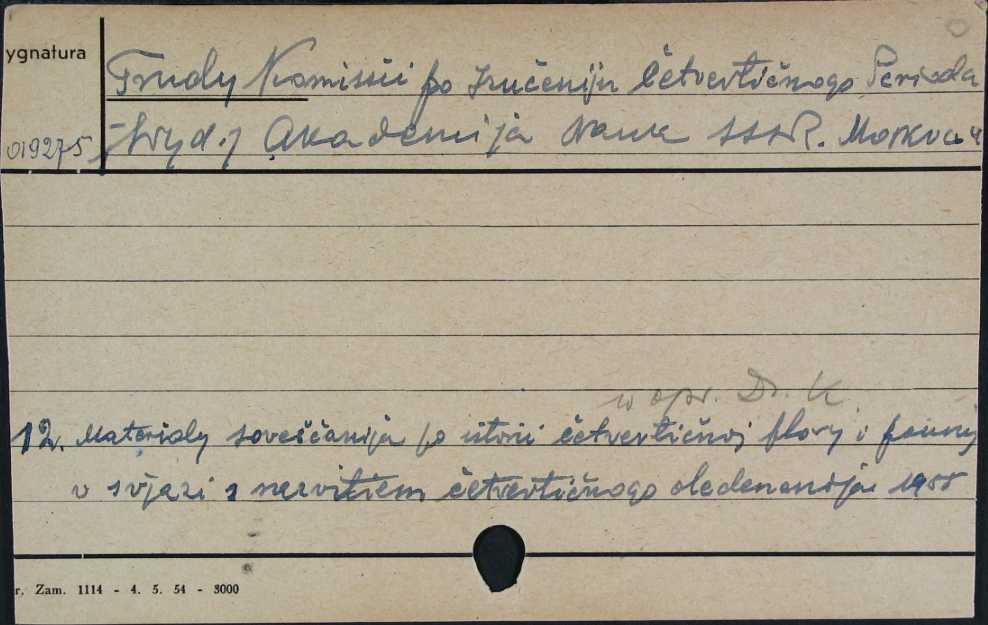 ygnatura
Trudy Komissii po Izučeniju Četvertičnogo Perioda
019275 [Wyd.] Akademija Nauk SSSR. Moskva
w opr. Dr. K.
12. Materialy soveščanija po istorii četvertičnoj flory i fauny
v svjazi s razvitiem četvertičnogo oledenenija 1955
r. Zam. 1114 - 4. 5. 54 - 3000